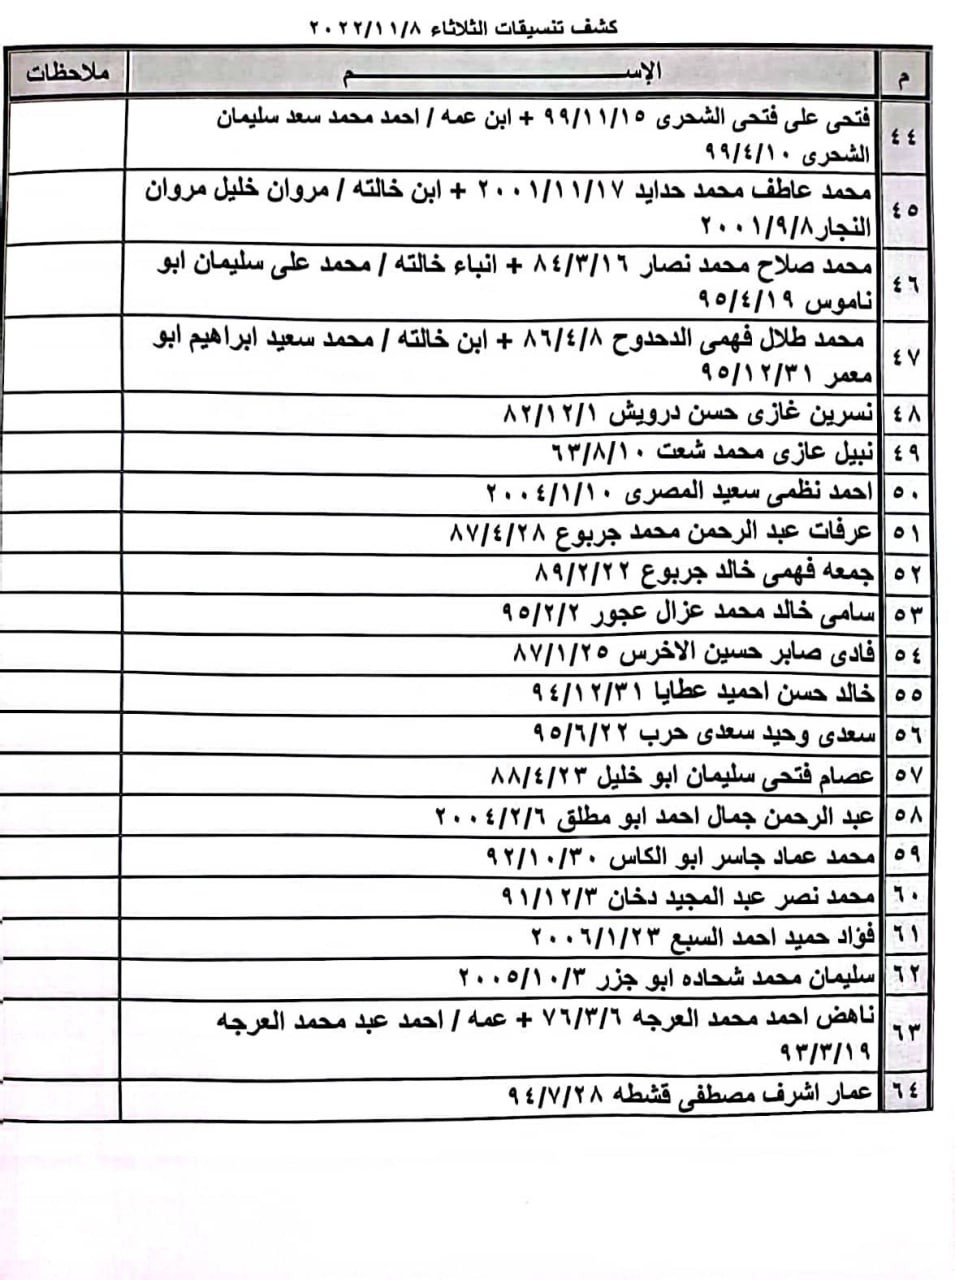 كشف تنسيقات الثلاثاء ٢٠٢٢/١١/٨
م الإســــــــــم ملاحظات
٤٤ فتحى على فتحى الشحرى ٩٩/١١/١٥ + ابن عمه / احمد محمد سعد سليمان
الشحرى ٩٩/٤/١٠
٤٥ محمد عاطف محمد حدايد ٢٠٠١/١١/١٧ + ابن خالته / مروان خليل مروان
النجار٢٠٠١/٩/٨
٤٦ محمد صلاح محمد نصار ٨٤/٣/١٦ + انباء خالته / محمد على سليمان ابو
ناموس ٩٥/٤/١٩
٤٧ محمد طلال فهمى الدحدوح ٨٦/٤/٨ + ابن خالته / محمد سعيد ابراهيم ابو
معمر ٩٥/١٢/٣١
٤٨ نسرين غازى حسن درويش ٨٢/١٢/١
٤٩ نبيل عازى محمد شعت ٦٣/٨/١٠
٥٠ احمد نظمى سعيد المصرى ٢٠٠٤/١/١٠
٥١ عرفات عبد الرحمن محمد جربوع ٨٧/٤/٢٨
٥٢ جمعه فهمى خالد جربوع ٨٩/٢/٢٢
٥٣ سامى خالد محمد عزال عجور ٩٥/٢/٢
٥٤ فادى صابر حسين الاخرس ٨٧/١/٢٥
٥٥ خالد حسن احميد عطايا ٩٤/١٢/٣١
٥٦ سعدى وحيد سعدى حرب ٩٥/٦/٢٢
٥٧ عصام فتحى سليمان ابو خليل ٨٨/٤/٢٣
٥٨ عبد الرحمن جمال احمد ابو مطلق ٢٠٠٤/٢/٦
٥٩ محمد عماد جاسر ابو الكاس ٩٢/١٠/٣٠
٦٠ محمد نصر عبد المجيد دخان ٩١/١٢/٣
٦١ فؤاد حميد احمد السبع ٢٠٠٦/١/٢٣
٦٢ سليمان محمد شحاده ابو جزر ٢٠٠٥/١٠/٣
٦٣ ناهض احمد محمد العرجه ٧٦/٣/٦ + عمه / احمد عبد محمد العرجه
٩٣/٣/١٩
٦٤ عمار اشرف مصطفى قشطه ٩٤/٧/٢٨